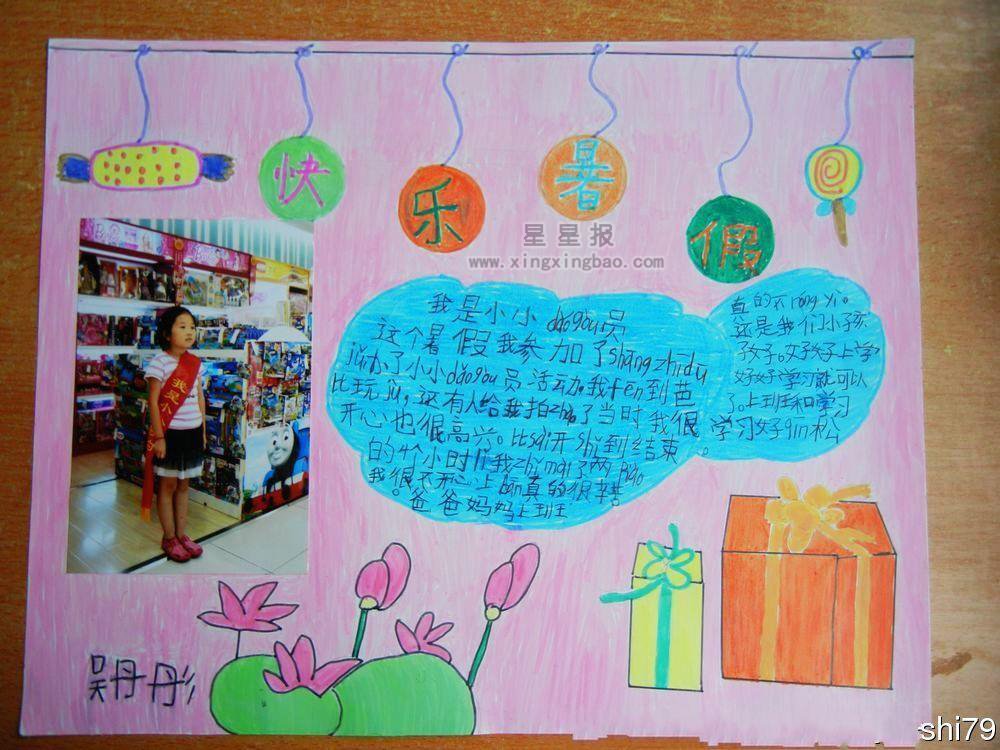 快
乐
暑
假
星星报
www.xingxingbao.com
我是小
我是小小dǎogòu员
这个暑假我参加了shāng zhīdū
jǔ办了小小dǎogòu员活动。我fēn到芭
比玩jù，还有人给我拍zhào了当时我很
开心也很高兴。比sài开shǐ到结束
的4个小时他我zhǐ mài了两 bāo
我很不开心上bān真的很辛苦
。爸爸妈妈上班
真的不róng yì。
还是我们小孩
子好。好孩子上学
好好学习就可以
了。上班和学习
学习好qīn松
。
吴丹彤
shi79